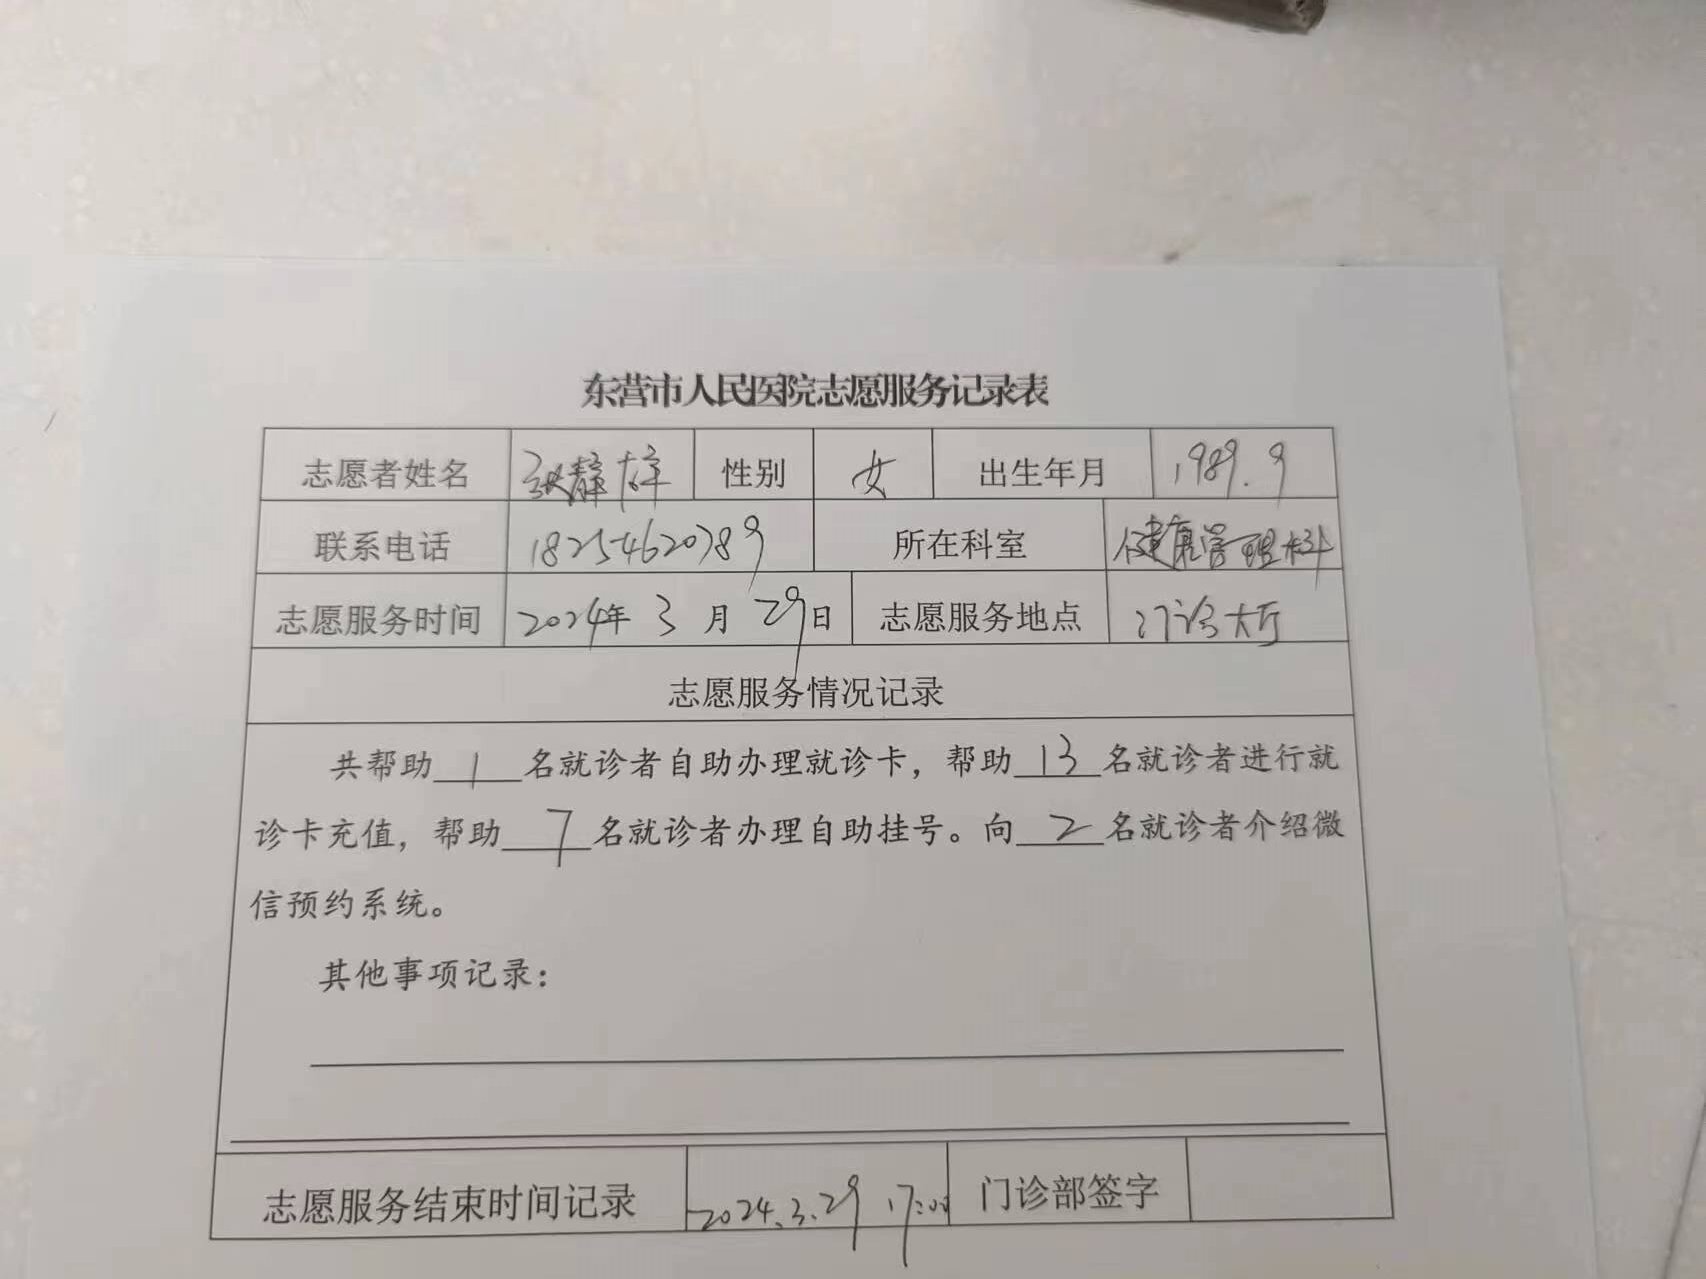 东营市人民医院志愿服务记录表
志愿者姓名 张静 性别 女 出生年月 1989.9
联系电话 18254620789 所在科室 健康管理科
志愿服务时间 2024年 3 月 29日 志愿服务地点 门诊大厅
志愿服务情况记录
共帮助 1 名就诊者自助办理就诊卡，帮助 13 名就诊者进行就
诊卡充值，帮助 7 名就诊者办理自助挂号。向 2 名就诊者介绍微
信预约系统。
其他事项记录：
志愿服务结束时间记录 2024.3.29 17:00 门诊部签字